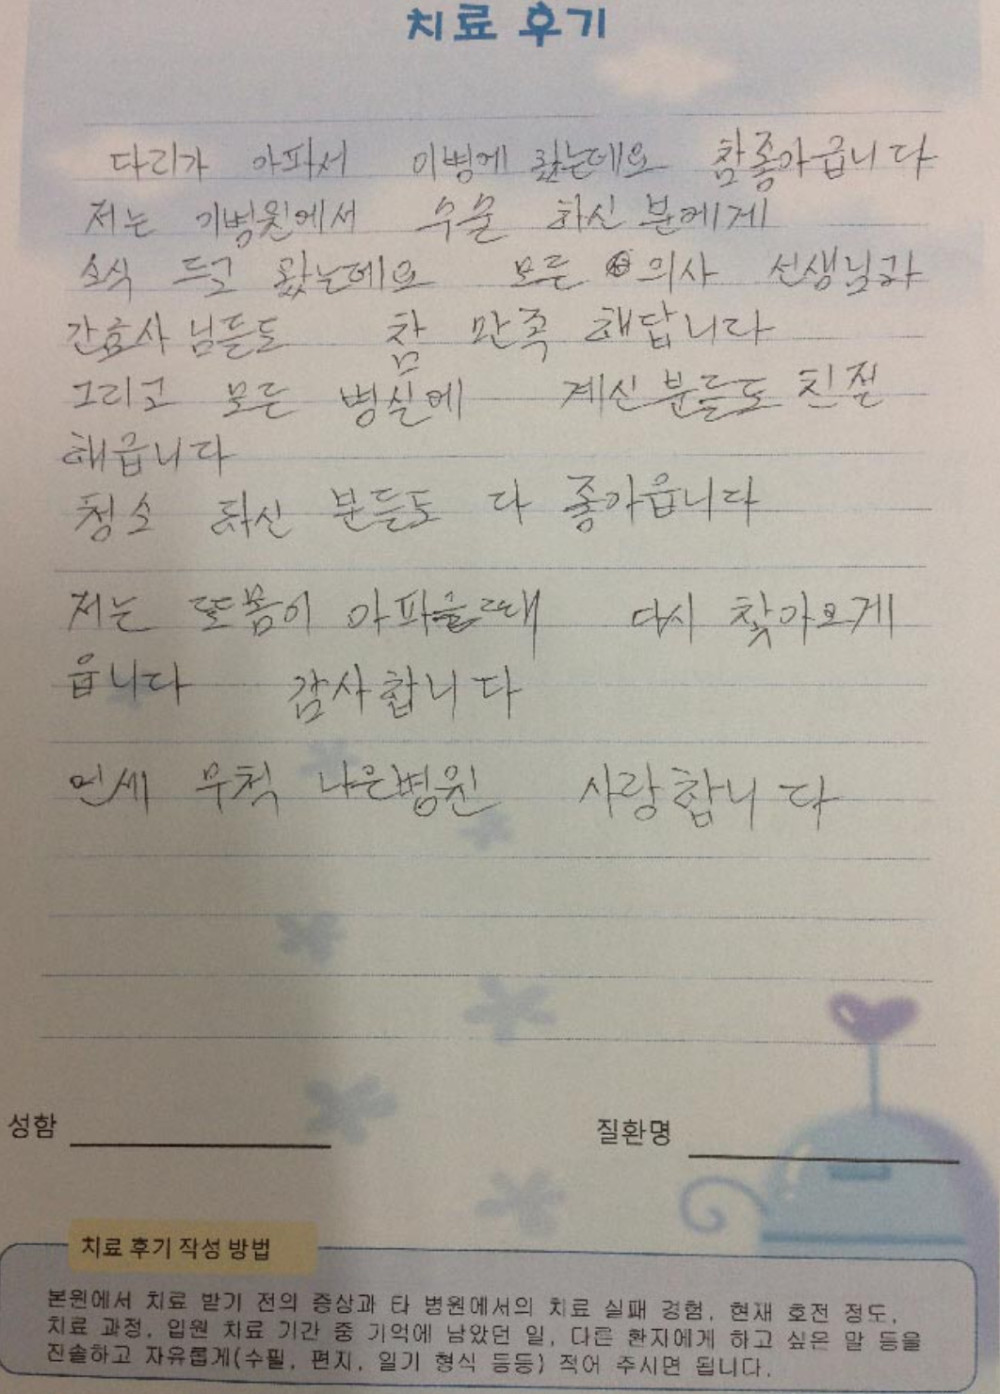 치료 후기
다리가 아파서 이병에 왔는데요 참좋아급니다
저는 기병원에서 수술 하신 분에게
소식 듣고 왔는데요 모든 의사 선생님과
간호사 님들도 참 만족 해답니다
그리고 모든 병실에 계신 분들도 친절
해급니다
청소 하신 분들도 다 좋아읍니다
저는 또몸이 아파을때 다시 찾아오게
읍니다 감사합니다
연세 무척 나은병원 사랑합니다
성함
질환명
치료 후기 작성 방법
본원에서 치료 받기 전의 증상과 타 병원에서의 치료 실패 경험, 현재 호전 정도,
치료 과정, 입원 치료 기간 중 기억에 남았던 일, 다른 환자에게 하고 싶은 말 등을
진솔하고 자유롭게(수필, 편지, 일기 형식 등등) 적어 주시면 됩니다.